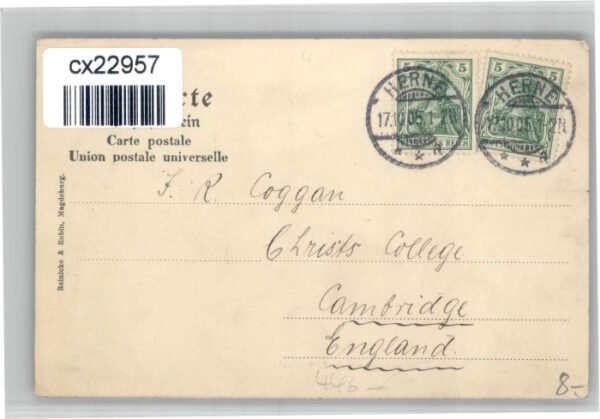 cx22957
rte
ein
Carte postale
Union postale universelle
Reinicke & Rubin, Magdeburg.
5 5
5 5
HERNE
17.10.05.1-2N.
* * a
HERNE
10.05.1-2N.
* * a
REICH
J. R. Coggan
Christs College
Cambridge
England.
446-
8-